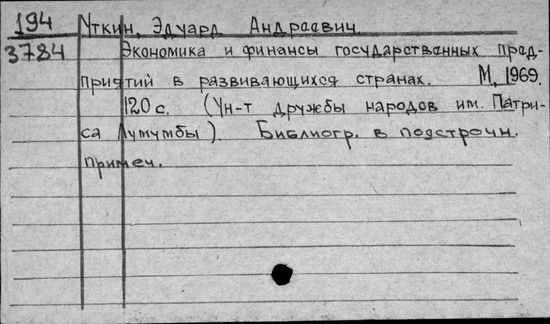 194 Уткин, Эдуард Андреевич.
3784 Экономика и финансы государственных пред-
приятий в развивающихся странах. М, 1969.
120 с. (Ун-т дружбы народов им. Патри-
са Лумумбы). Библиогр. в подстрочн.
примеч.